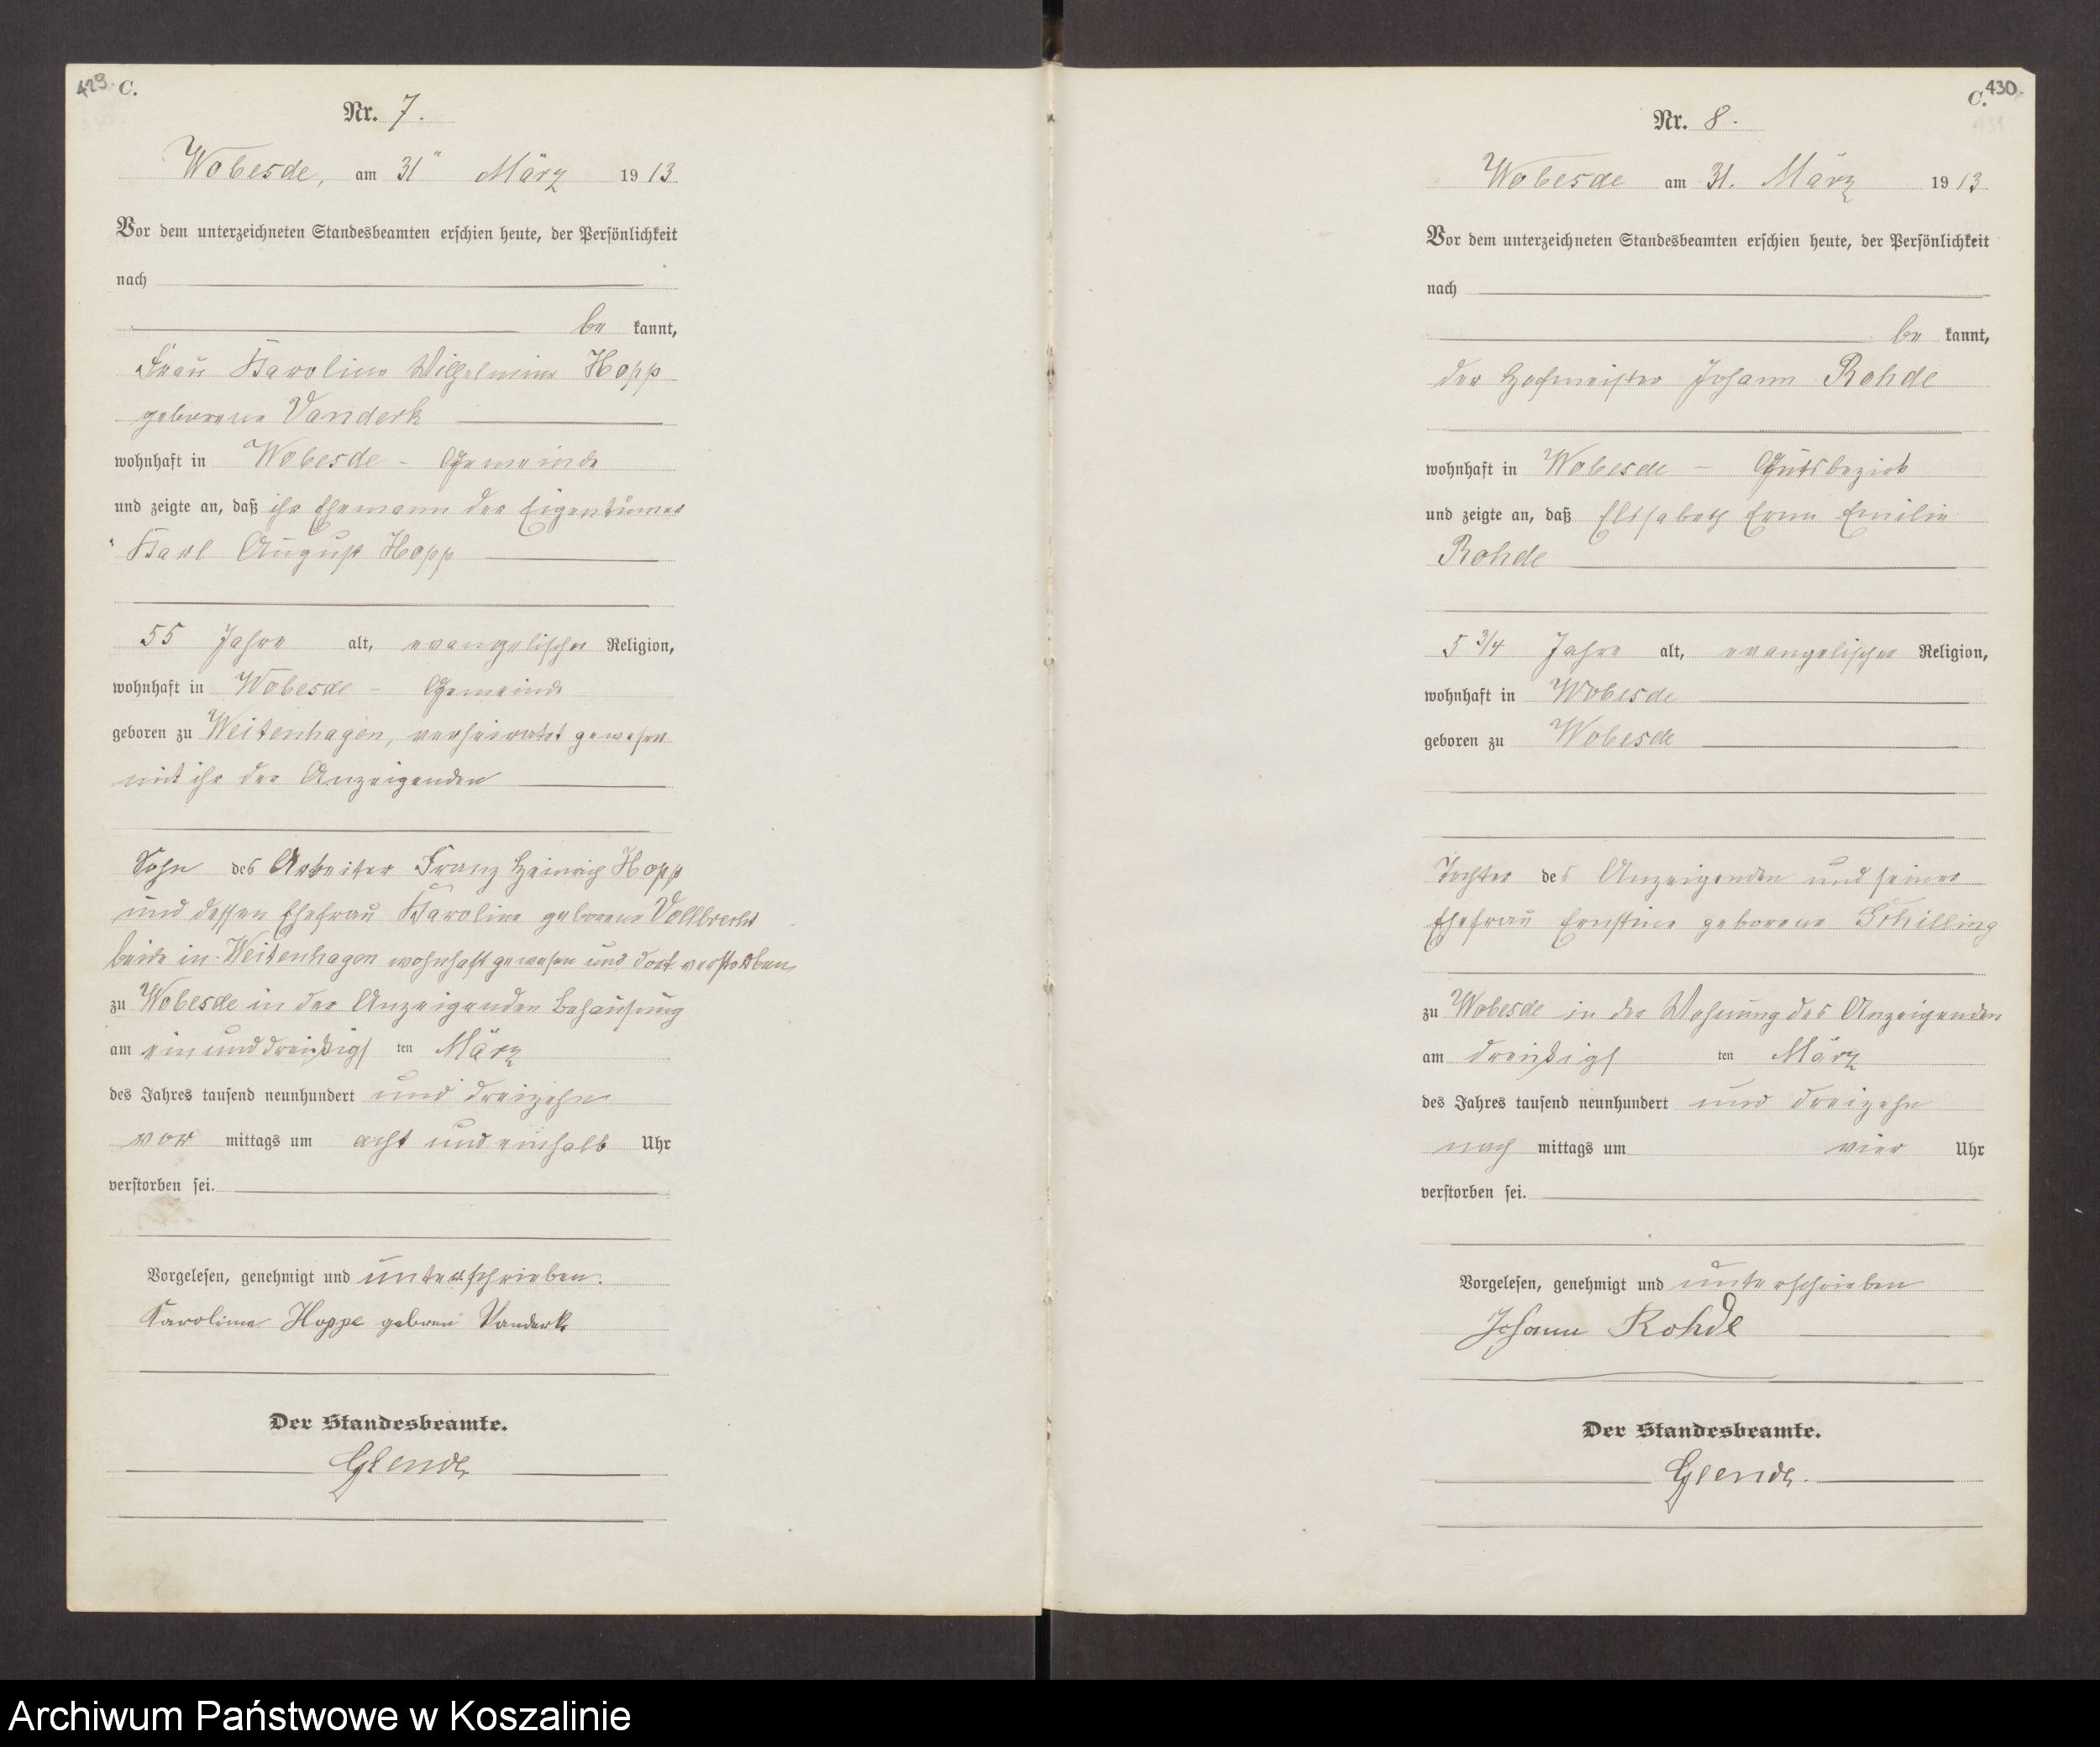 429. C.
Nr. 7.
Wobesde, am 31ten März 1913
Vor dem unterzeichneten Standesbeamten erschien heute, der Persönlichkeit
nach
be kannt,
Frau Karoline Wilhelmine Hopp
geborene Vanderk
wohnhaft in Wobesde - Gemeinde
und zeigte an, daß ihr Ehemann der Eigentümer
Karl August Hopp
55 Jahre alt, evangelischer Religion,
wohnhaft in Wobesde - Gemeinde
geboren zu Weitenhagen, verheiratet gewesen
mit ihr der Anzeigenden
Sohn des Arbeiter Franz Heinrich Hopp
und dessen Ehefrau Karoline geborene Vollbrecht
beide in Weitenhagen wohnhaft gewesen und dort verstorben
zu Wobesde in der Anzeigenden Behausung
am einunddreißigs ten März
des Jahres tausend neunhundert und dreizehn
vor mittags um acht und einhalb Uhr
verstorben sei.
Vorgelesen, genehmigt und unterschrieben.
Karoline Hoppe geboren Vanderk
Der Standesbeamte.
Glende
C. 430
Nr. 8.
Wobesde am 31. März 1913
Vor dem unterzeichneten Standesbeamten erschien heute, der Persönlichkeit
nach
be kannt,
der Hofmeister Johann Rohde
wohnhaft in Wobesde - Gutsbezirk
und zeigte an, daß Elisabeth Erna Emilie
Rohde
5 3/4 Jahre alt, evangelischer Religion,
wohnhaft in Wobesde
geboren zu Wobesde
Tochter des Anzeigenden und seiner
Ehefrau Ernstine geborene Schilling
zu Wobesde in der Wohnung des Anzeigenden
am dreißigs ten März
des Jahres tausend neunhundert und dreizehn
nach mittags um vier Uhr
verstorben sei.
Vorgelesen, genehmigt und unterschrieben
Johann Rohde
Der Standesbeamte.
Glende.
Archiwum Państwowe w Koszalinie